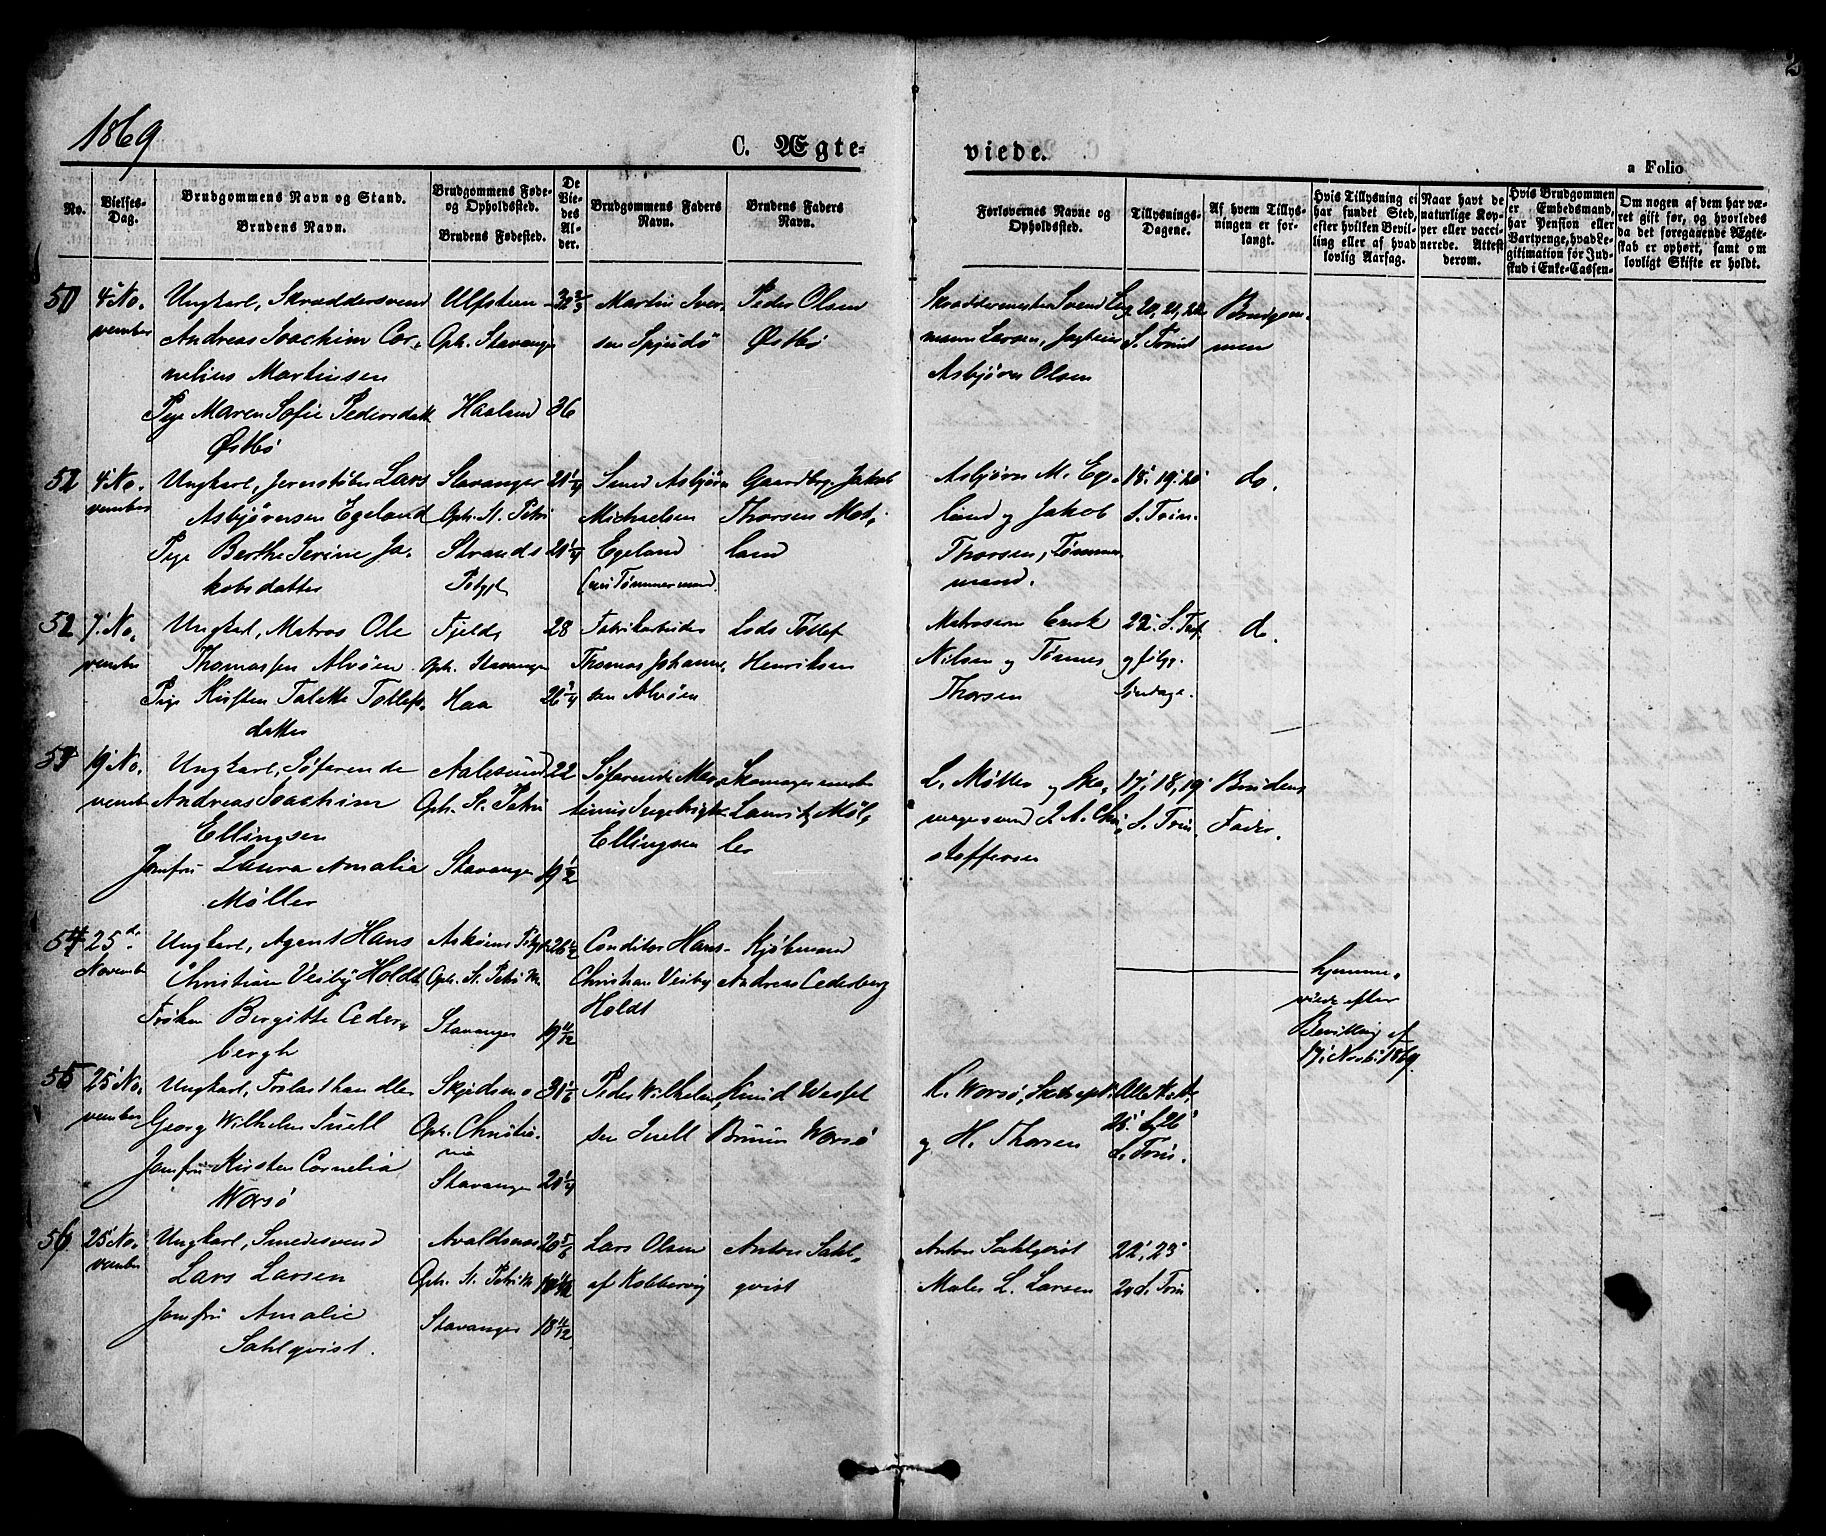 1869
C. Ægte-
viede.
a Folio
No.
Vielses-
Dag.
Brudgommens Navn og Stand.
Brudens Navn.
Brudgommens Føde-
og Opholdssted.
Brudens Fødested.
De
Vie-
des
Al-
der.
Brudgommens Faders
Navn.
Brudens Faders
Navn.
Forlovernes Navne og
Opholdssted.
Tillysnings-
Dagene.
Af hvem Tillys-
ningen er for-
langt.
Hvis Tillysning ei
har fundet Sted,
efter hvilken Bevil-
ling eller af hvad
lovlig Aarsag.
Naar havt de
naturlige Kop-
per eller vacci-
nerede. Attest
derom.
Hvis Brudgommen
er Embedsmand,
har Pension eller
Vartpenge, hvad Le-
gitimation for Ind-
skud i Enke-Cassen-
Om nogen af dem har væ-
ret gift før, og hvorledes
da det foregaaende Ægte-
skab er ophørt, samt om
lovligt Skifte er holdt.
50
4' No-
vember
Ungkarl, Skræddersvend
Andreas Joachim Cor-
nelius Martinsen
Pige Maren Sofie Pedersdatt
Østbø
Oph. Stavanger
Haaland
36
Martin Iver-
sen
Peder Olsen
Østbø
Skræddermester Svend
Larsen,
Asbjørn Olsen
20, 21, 22
S. Trinit
Brudgom-
men
51
4' No-
vember
Ungkarl, Jernstøber Lars
Asbjørnsen Egeland
Pige Berthe Serine Ja-
kobsdatter
Stavanger
Oph. St. Petri
Strands
Pstgjd
21 1/4
Smed Asbjørn
Michaelsen
Egeland
(nu Tømmermand)
Gaardbrg. Jakob
Thorsen Mæ-
land
Asbjørn M. Ege-
land og Jakob
Thorsen, Tømmer-
mand.
18' 19' 20
S. Trin.
do.
52
7' No-
vember
Ungkarl, Matros Ole
Thomassen Alvøen
Pige Kirsten Talette Tollefs-
datter
Fjelds
Oph. Stavanger
Haa
28
Fabrikarbeider
Thomas Johanne-
sen Alvøen
Lods Tollef
Henriksen
Matroserne Enok
Nilsen og Tønnes
Thorsen
22' S. Tref.
og følg.
Søndage.
do.
53
19' No-
vember
Ungkarl, Søfarende
Andreas Joachim
Ellingsen
Jomfru Laura Amalia
Møller
Aalesund
Oph. St. Petri
Stavanger
22
19 1/2
Søfarende Mar-
tinus Ingebrigt
Ellingsen
Skomagermester
Lauritz Møl-
ler
L. Møller og Sko-
magersvend J. A. Chri-
stoffersen
17', 18, 19'
S. Trin.
Brudens
Fader.
54
25'
November
Ungkarl, Agent Hans
Christian Veiby Holdt
Frøken Birgitte Ceder-
bergh
Askøens Pstgjd
Oph. St. Petri M.
Stavanger
26 1/2
19 11/12
Conditor Hans
Christian Veiby
Holdt
Kjøbmand
Andreas Cederberg
hjemme-
viede efter
Bevilling af
17' Novbr 1869.
55
25' No-
vember
Ungkarl, Trælasthandler
Georg Wilhelm Juell
Jomfru Kirsten Cornelia
Worsø
Oph. Christia-
nia
Stavanger
31 1/6
21 1/4
Peder Wilhelm-
sen Juell
Knud Wessel
Bruun Worsø
K. Worsø,
og H. Thorsen
S. Trin.
56
25' No-
vember
Ungkarl, Smedesvend
Lars Larsen
Jomfru Amalie
Sahlqvist.
Avaldsnes
Oph. St. Petri M.
Stavanger
20 5/6
18 11/12
Lars Olsen
af Kobbervig
Anton Sahl-
qvist
Anton Sahlqvist
Maler L. Larsen
22', 23'
24 S. Trin